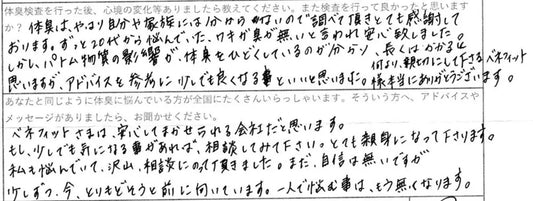 体臭検査を行った後、心境の変化等ありましたら教えてください。また検査を行って良かったと思います
か? 体臭は、やはり自分や家族には分からないので調べて頂きとても感謝して
おります。ずっと20代から悩んでいた、ワキが臭が無いと言われ安心致しました。
しかし、パトム物質の影響が、体臭をひどくしているのが分かり、長くはかかると
思いますが、アドバイスを参考に少しでも良くなる事といいと思いました。
何より、親切にして下さるベネフィット
様本当にありがとうございます。
あなたと同じように体臭に悩んでいる方が全国にたくさんいらっしゃいます。そういう方へ、アドバイスや
メッセージがありましたら、お聞かせください。
ベネフィットさまは、安心してまかせられる会社だと思います。
もし、少しでも気になる事があれば、相談してみて下さい。とても親身になって下さります。
私も悩んでいて、沢山、相談にのって頂きました。まだ、自信は無いですが
少しずつ、今、とりもどそうと前に向いています。一人で悩む事は、もう無くなります。